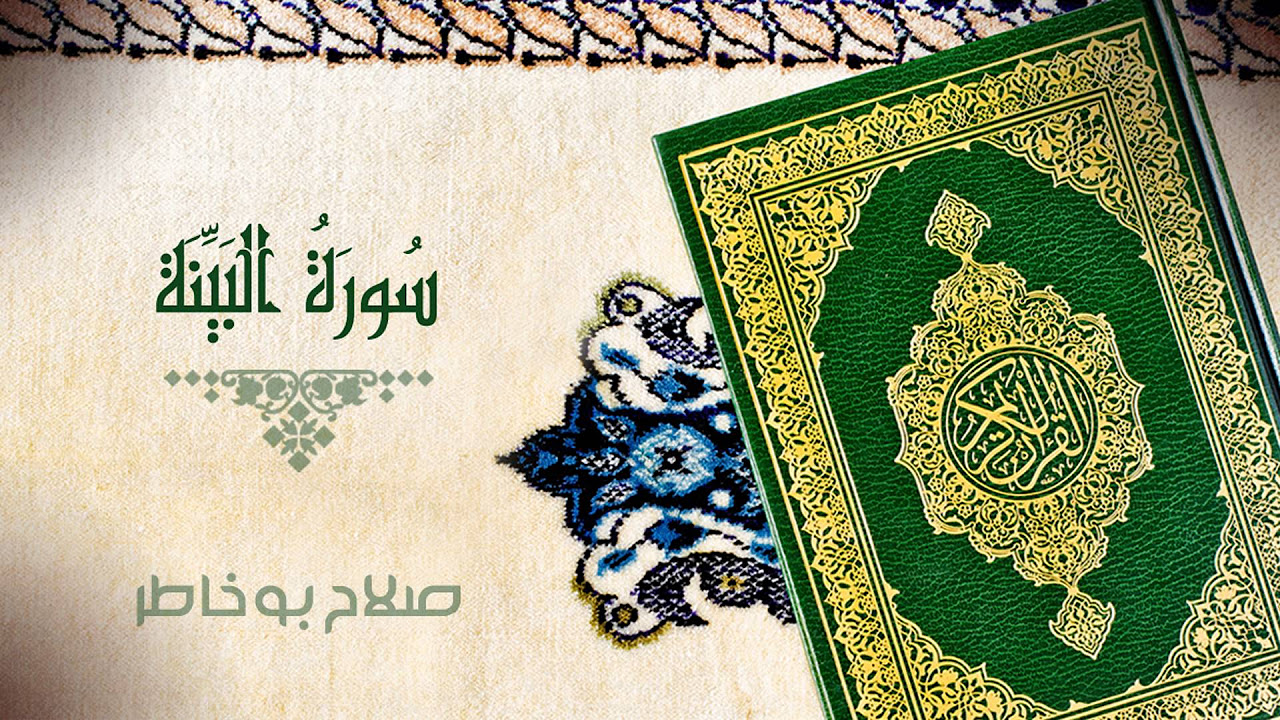 سُورَةُ البَيِّنَة
صلاح بوخاطر
القرآن الكريم